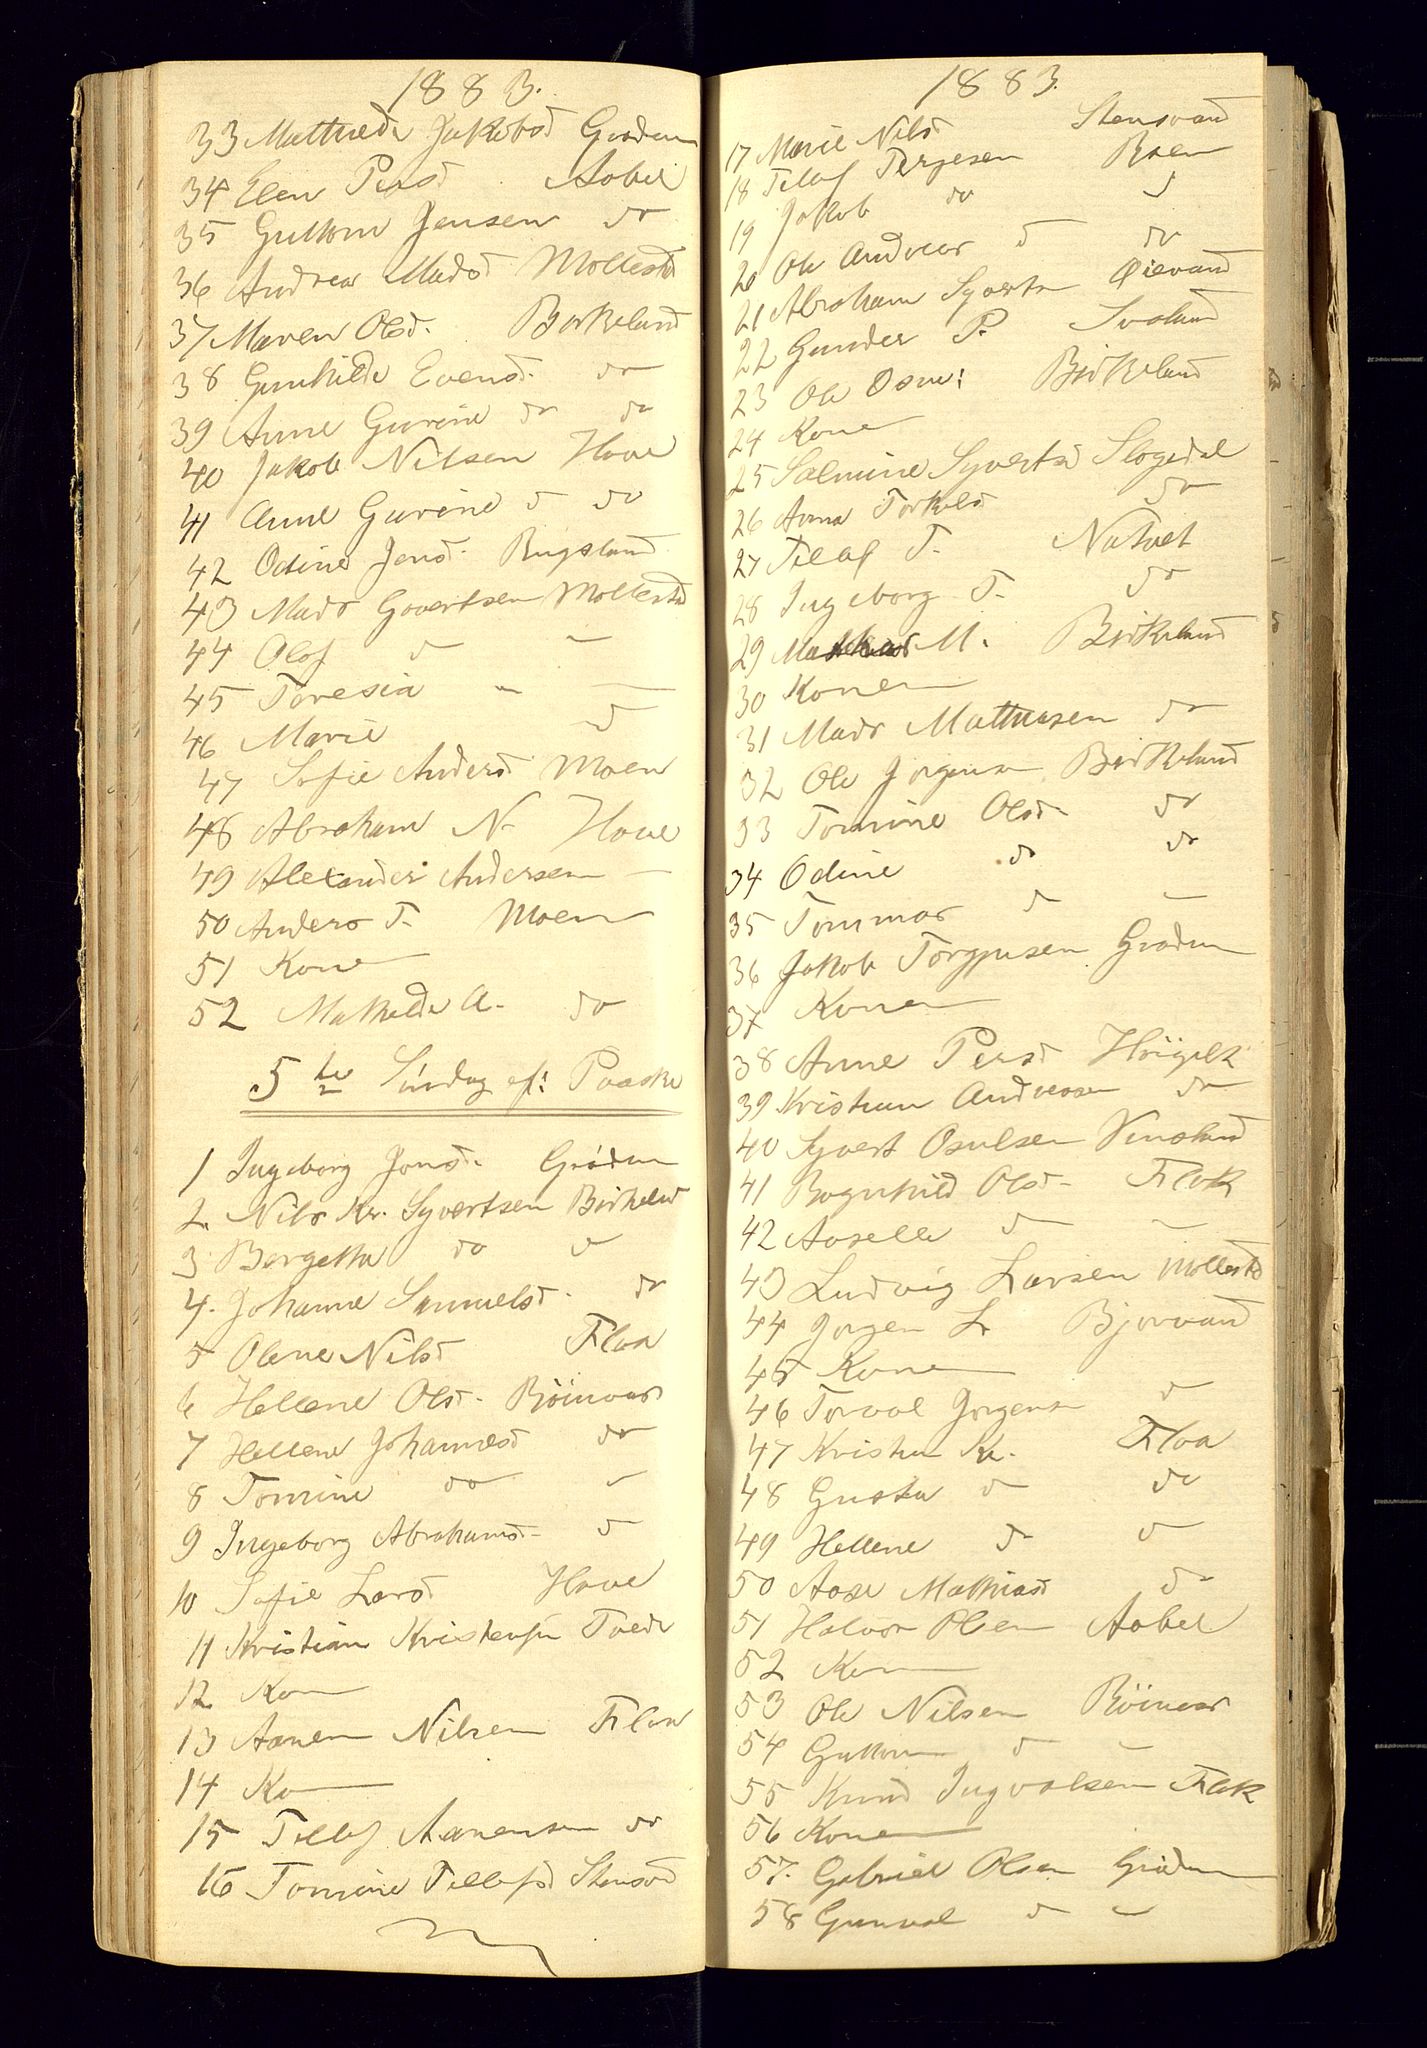 1883.
33 Mathilde Jakobsd Grødum
34 Elen Persd Aabel
35 Guttorm Jensen do
36 Andrea Madsd Mollestad
37 Maren Olsd. Birkeland
38 Gunhilde Evensd. do
39 Anne Gurine do do
40 Jakob Nilsen Hove
41 Anne Gurine d do
42 Odine Jensd. Rugsland
43 Mads Govertsen Mollestad
44 Olof d —
45 Teresia — —
46 Marie d
47 Sofie Andersd Moen
48 Abraham N. Hove
49 Alexander Andersen —
50 Anders T. Moen
51 Kone
52 Mathilde A. do
5te Søndag ef: Paaske
1 Ingeborg Jonsd. Grødum
2. Nils Kr. Syvertsen Birkeland
3 Bergetha do d
4. Johanne Samuelsd. do
5 Olene Nilsd Flaa
6 Hellene Olsd. Röinaas
7 Hellene Johannesd do
8 Tomine do —
9 Ingeborg Abrahamsd d
10 Sofie Larsd Hove
11 Kristian Kristensen Tvede
12 Kone
13 Aanen Nilsen Flaa
14 Kone
15 Tellef Aanensen do
16 Tomine Tellefsd Stensvand
1883.
17 Marie Nilsd Stensvand
18 Tellef Tergesen Roen
19 Jakob do d
20 Ole Andreas d do
21 Abraham Syverts Øievand
22 Gunder P. Svaland
23 Ole Osm: Birkeland
24 Kone
25 Salmine Syvertsd Slogedal
26 Anna Torkelsd do
27 Tellef T. Natvet
28 Ingeborg T. do
29 M. Birkeland
30 Konen
31 Mads Mathiasen do
32 Ole Jørgensen Birkeland
33 Tomine Olsd. do
34 Odine do do
35 Tommas d —
36 Jakob Torgjusen Grødum
37 Konen
38 Anne Persd Høigilt
39 Kristian Andreasen do
40 Syvert Osulsen Vinsland
41 Bognhild Olsd. Flak
42 Aaselle d —
43 Ludvig Larsen Mollestad
44 Jørgen L. Bjorvand
45 Konen
46 Torval Jørgensen d
47 Kristen Kr. Flaa
48 Gusta d do
49 Hellene d d
50 Aase Mathiasd d
51 Halvor Olsen Aabel
52 Kone
53 Ole Nilsen Röinaas
54 Guttorm d —
55 Knud Ingvalsen Flak
56 Konen
57. Gabriel Olsen Grødum
58 Gunval d —